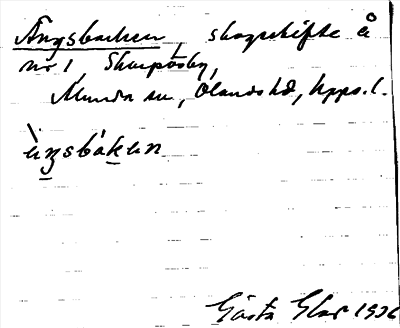 Ängsbacken, skogsskifte å
nr 1 Skarpösby,
Munda sn, Olands hd, Upps. l.
ängsbaken
Gösta 1936